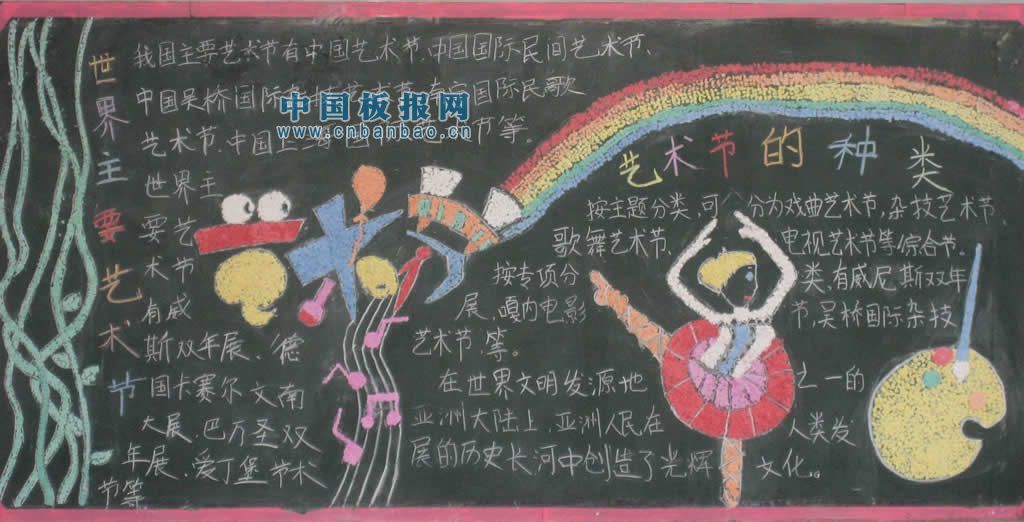 世界主要艺术节
我国主要艺术节有中国艺术节、中国国际民间艺术节、
中国吴桥国际 国际民歌
艺术节、中国上海国 节等。
世界主
要艺
术节
有威
斯双年展、德
国卡赛尔文南
大展、巴万圣双
年展、爱丁堡节术
节等
中国板报网
www.cnbanbao.cn
艺术节
艺术节的种类
按主题分类,可 分为戏曲艺术节,杂技艺术节、
歌舞艺术节、 电视艺术节等综合节。
按专项分 类,有威尼斯双年
展,嘎内电影 节,吴桥国际杂技
艺术节,等。
在世界文明发源地 之一的
亚洲大陆上,亚洲人民在 人类发
展的历史长河中创造了光辉 文化。